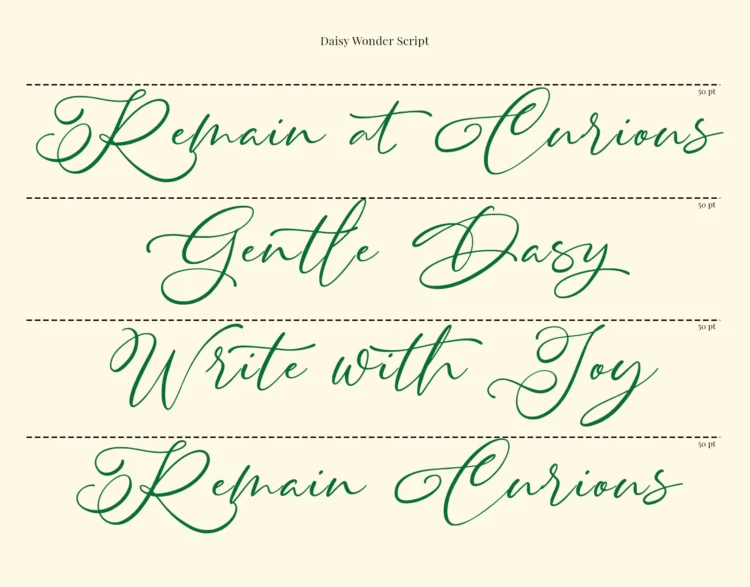 Daisy Wonder Script
50 pt
Remain at Curious
50 pt
Gentle Dasy
50 pt
Write with Joy
50 pt
Remain Curious